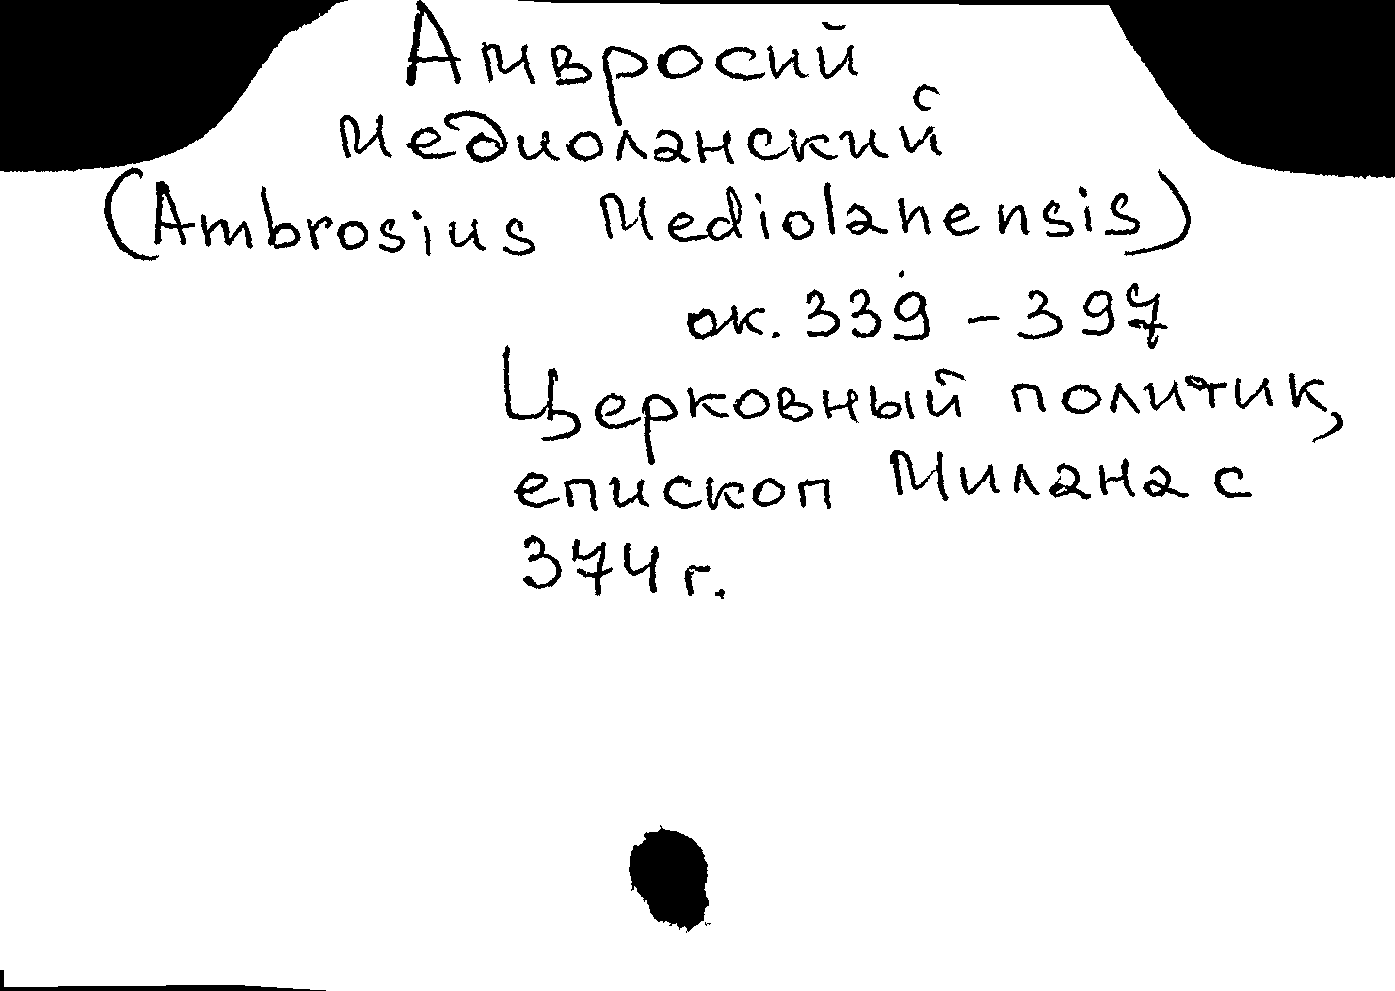 Амвросий
Медиоланский
(Ambrosius Mediolanensis)
ок. 339 - 397
Церковный политик,
епископ Милана с
374 г.